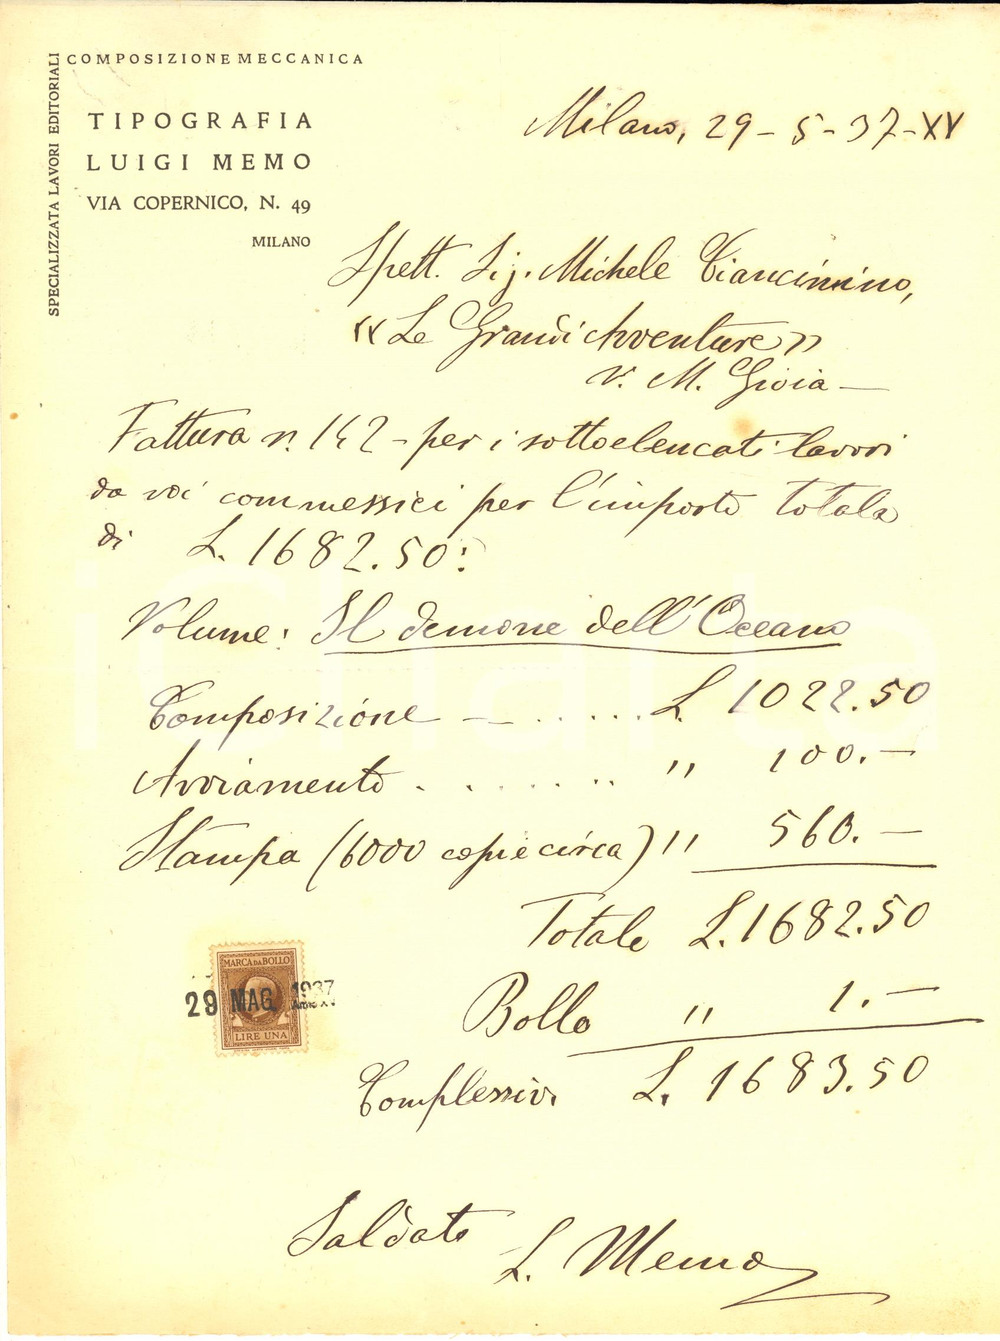 COMPOSIZIONE MECCANICA
SPECIALIZZATA LAVORI EDITORIALI
TIPOGRAFIA
LUIGI MEMO
VIA COPERNICO, N. 49
MILANO
Milano, 29-5-37-XV
Spett. Sig. Michele Ciancimino,
"Le Grandi Avventure"
v. M. Gioia —
Fattura n. 142 - per i sottoelencati lavori
da voi commessici per l'importo totale
di L. 1682.50:
Volume: Il demone dell'Oceano
Composizione — ...... L. 1022.50
Avviamento . . ...... " 100.—
Stampa (6000 copie circa) " 560.—
Totale L. 1682.50
Bollo " 1.—
Complessiv. L. 1683.50
MARCA DA BOLLO
29 MAG. 1937
Anno XV
LIRE UNA
Saldato
L. Memo
iCharta